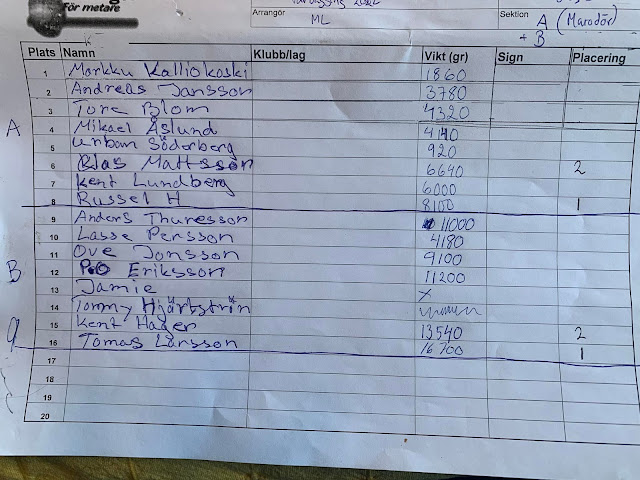 För metare
Arrangör ML
Sektion A (Maradör)
+ B
Plats Namn Klubb/lag Vikt (gr) Sign Placering
1 Markku Kalliokoski 1860
2 Andreas Jansson 3780
3 Tore Blom 4320
A 4 Mikael Åslund 4140
5 Urban Söderberg 920
6 Blas Mattsson 6640 2
7 Kent Lundberg 6000
8 Russel H 8100 1
9 Anders Thuresson 11000
10 Lasse Persson 4180
11 Ove Jonsson 9100
B 12 P.O Eriksson 11200
13 Jamie x
14 Tommy Hjärtström
15 Kent Hager 13540 2
16 Tomas Larsson 16700 1
17
18
19
20